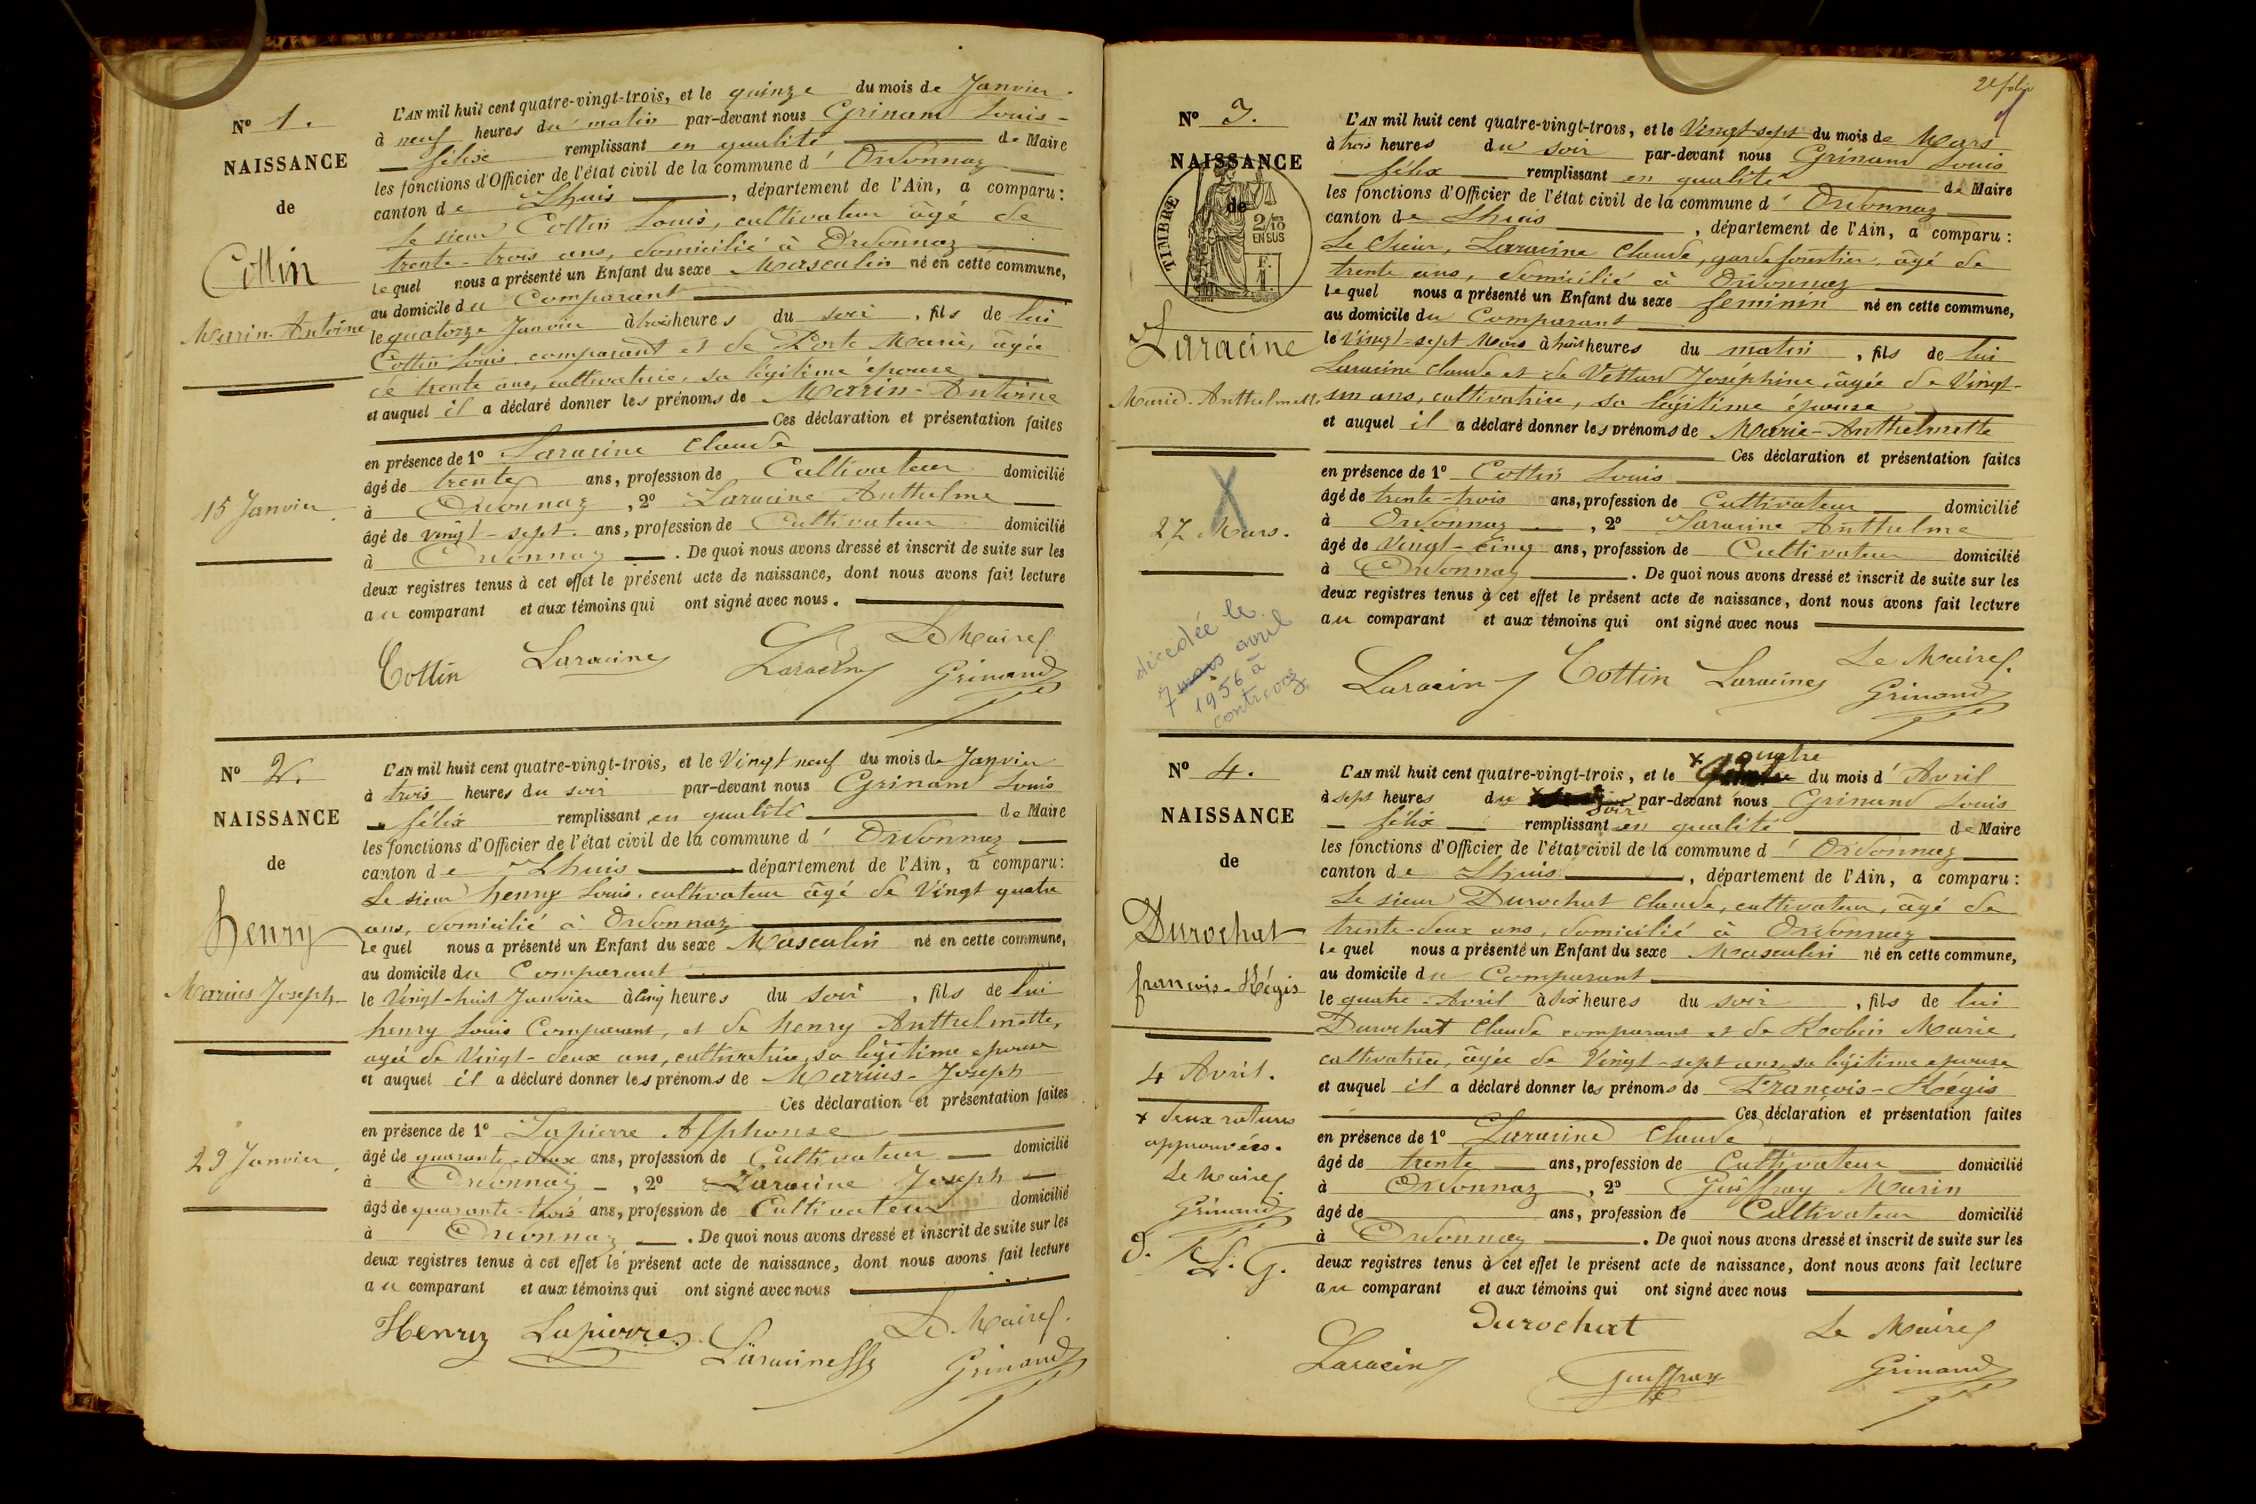 Nº 1.
NAISSANCE
de
Cottin
Marin-Antoine
15 Janvier
L'AN mil huit cent quatre-vingt-trois, et le quinze du mois de Janvier
à neuf heures du matin par-devant nous Grinand Louis-
félix remplissant en qualité de Maire
les fonctions d'Officier de l'état civil de la commune d' Ordonnaz
canton de Lhuis, département de l'Ain, a comparu :
Le sieur Cottin Louis, cultivateur âgé de
trente-trois ans, domicilié à Ordonnaz
lequel nous a présenté un Enfant du sexe Masculin né en cette commune,
au domicile du Comparant
le quatorze Janvier à trois heures du soir, fils de lui
Cottin Louis comparant et de Marie, âgée
de trente ans, cultivatrice, sa légitime épouse
et auquel il a déclaré donner les prénoms de Marin-Antoine
Ces déclaration et présentation faites
en présence de 1º Laracine Claude
âgé de trente ans, profession de Cultivateur domicilié
à Ordonnaz, 2º Laracine Anthelme
âgé de vingt-sept ans, profession de Cultivateur domicilié
à Ordonnaz. De quoi nous avons dressé et inscrit de suite sur les
deux registres tenus à cet effet le présent acte de naissance, dont nous avons fait lecture
au comparant et aux témoins qui ont signé avec nous.
Cottin Laracine Laracine Le Maire
Grinand
Nº 2.
NAISSANCE
de
henry
Marius Joseph
29 Janvier
L'AN mil huit cent quatre-vingt-trois, et le Vingt neuf du mois de Janvier
à trois heures du soir par-devant nous Grinand Louis
félix remplissant en qualité de Maire
les fonctions d'Officier de l'état civil de la commune d' Ordonnaz
canton de Lhuis département de l'Ain, a comparu :
Le sieur henry Louis, cultivateur âgé de Vingt quatre
ans, domicilié à Ordonnaz
lequel nous a présenté un Enfant du sexe Masculin né en cette commune,
au domicile du Comparant
le Vingt-huit Janvier à cinq heures du soir, fils de lui
henry Louis Comparant, et de henry Anthelmette,
agée de Vingt-deux ans, cultivatrice, sa légitime epouse
et auquel il a déclaré donner les prénoms de Marius-Joseph
Ces déclaration et présentation faites
en présence de 1º Lapierre Alphonse
âgé de quarante-deux ans, profession de Cultivateur domicilié
à Ordonnaz, 2º Laracine Joseph
âgé de quarante-trois ans, profession de Cultivateur domicilié
à Ordonnaz. De quoi nous avons dressé et inscrit de suite sur les
deux registres tenus à cet effet le présent acte de naissance, dont nous avons fait lecture
au comparant et aux témoins qui ont signé avec nous
Henry Lapierre Laracine Le Maire
Grinand
Nº 3.
NAISSANCE
de
TIMBRE
2/10
EN SUS
Laracine
Marie-Anthelmette
27 Mars.
décédée le
7 mars avril
1956 à
Contrevoz
L'AN mil huit cent quatre-vingt-trois, et le Vingt-sept du mois de Mars
à trois heures du soir par-devant nous Grinand Louis
félix remplissant en qualité de Maire
les fonctions d'Officier de l'état civil de la commune d' Ordonnaz
canton de Lhuis, département de l'Ain, a comparu :
Le Sieur, Laracine Claude, garde forestier, âgé de
trente ans, domicilié à Ordonnaz
lequel nous a présenté un Enfant du sexe feminin né en cette commune,
au domicile du Comparant
le Vingt-sept Mars à heures du matin, fils de lui
Laracine Claude et de Vettard Joséphine, âgée de Vingt-
ans, cultivatrice, sa légitime épouse
et auquel il a déclaré donner les prénoms de Marie-Anthelmette
Ces déclaration et présentation faites
en présence de 1º Cottin Louis
âgé de trente-trois ans, profession de Cultivateur domicilié
à Ordonnaz, 2º Laracine Anthelme
âgé de Vingt-cinq ans, profession de Cultivateur domicilié
à Ordonnaz. De quoi nous avons dressé et inscrit de suite sur les
deux registres tenus à cet effet le présent acte de naissance, dont nous avons fait lecture
au comparant et aux témoins qui ont signé avec nous
Laracine Cottin Laracine Le Maire
Grinand
Nº 4.
NAISSANCE
de
Durochat
françois-Régis
4 Avril.
x deux ratures
approuvées.
Le Maire
Grinand
L. G.
L'AN mil huit cent quatre-vingt-trois, et le x quatre du mois d' Avril
à sept heures du soir par-devant nous Grinand Louis
félix remplissant en qualité de Maire
les fonctions d'Officier de l'état civil de la commune d' Ordonnaz
canton de Lhuis, département de l'Ain, a comparu :
Le sieur Durochat Claude, cultivateur, âgé de
trente-deux ans, domicilié à Ordonnaz
lequel nous a présenté un Enfant du sexe Masculin né en cette commune,
au domicile du Comparant
le quatre Avril à six heures du soir, fils de lui
Durochat Claude comparant et de Marie
cultivatrice, âgée de Vingt-sept ans, sa légitime epouse
et auquel il a déclaré donner les prénoms de François-Régis
Ces déclaration et présentation faites
en présence de 1º Laracine Claude
âgé de trente ans, profession de Cultivateur domicilié
à Ordonnaz, 2º Guiffray Marin
âgé de ans, profession de Cultivateur domicilié
à Ordonnaz. De quoi nous avons dressé et inscrit de suite sur les
deux registres tenus à cet effet le présent acte de naissance, dont nous avons fait lecture
au comparant et aux témoins qui ont signé avec nous
Durochat Le Maire
Laracine Guiffray Grinand